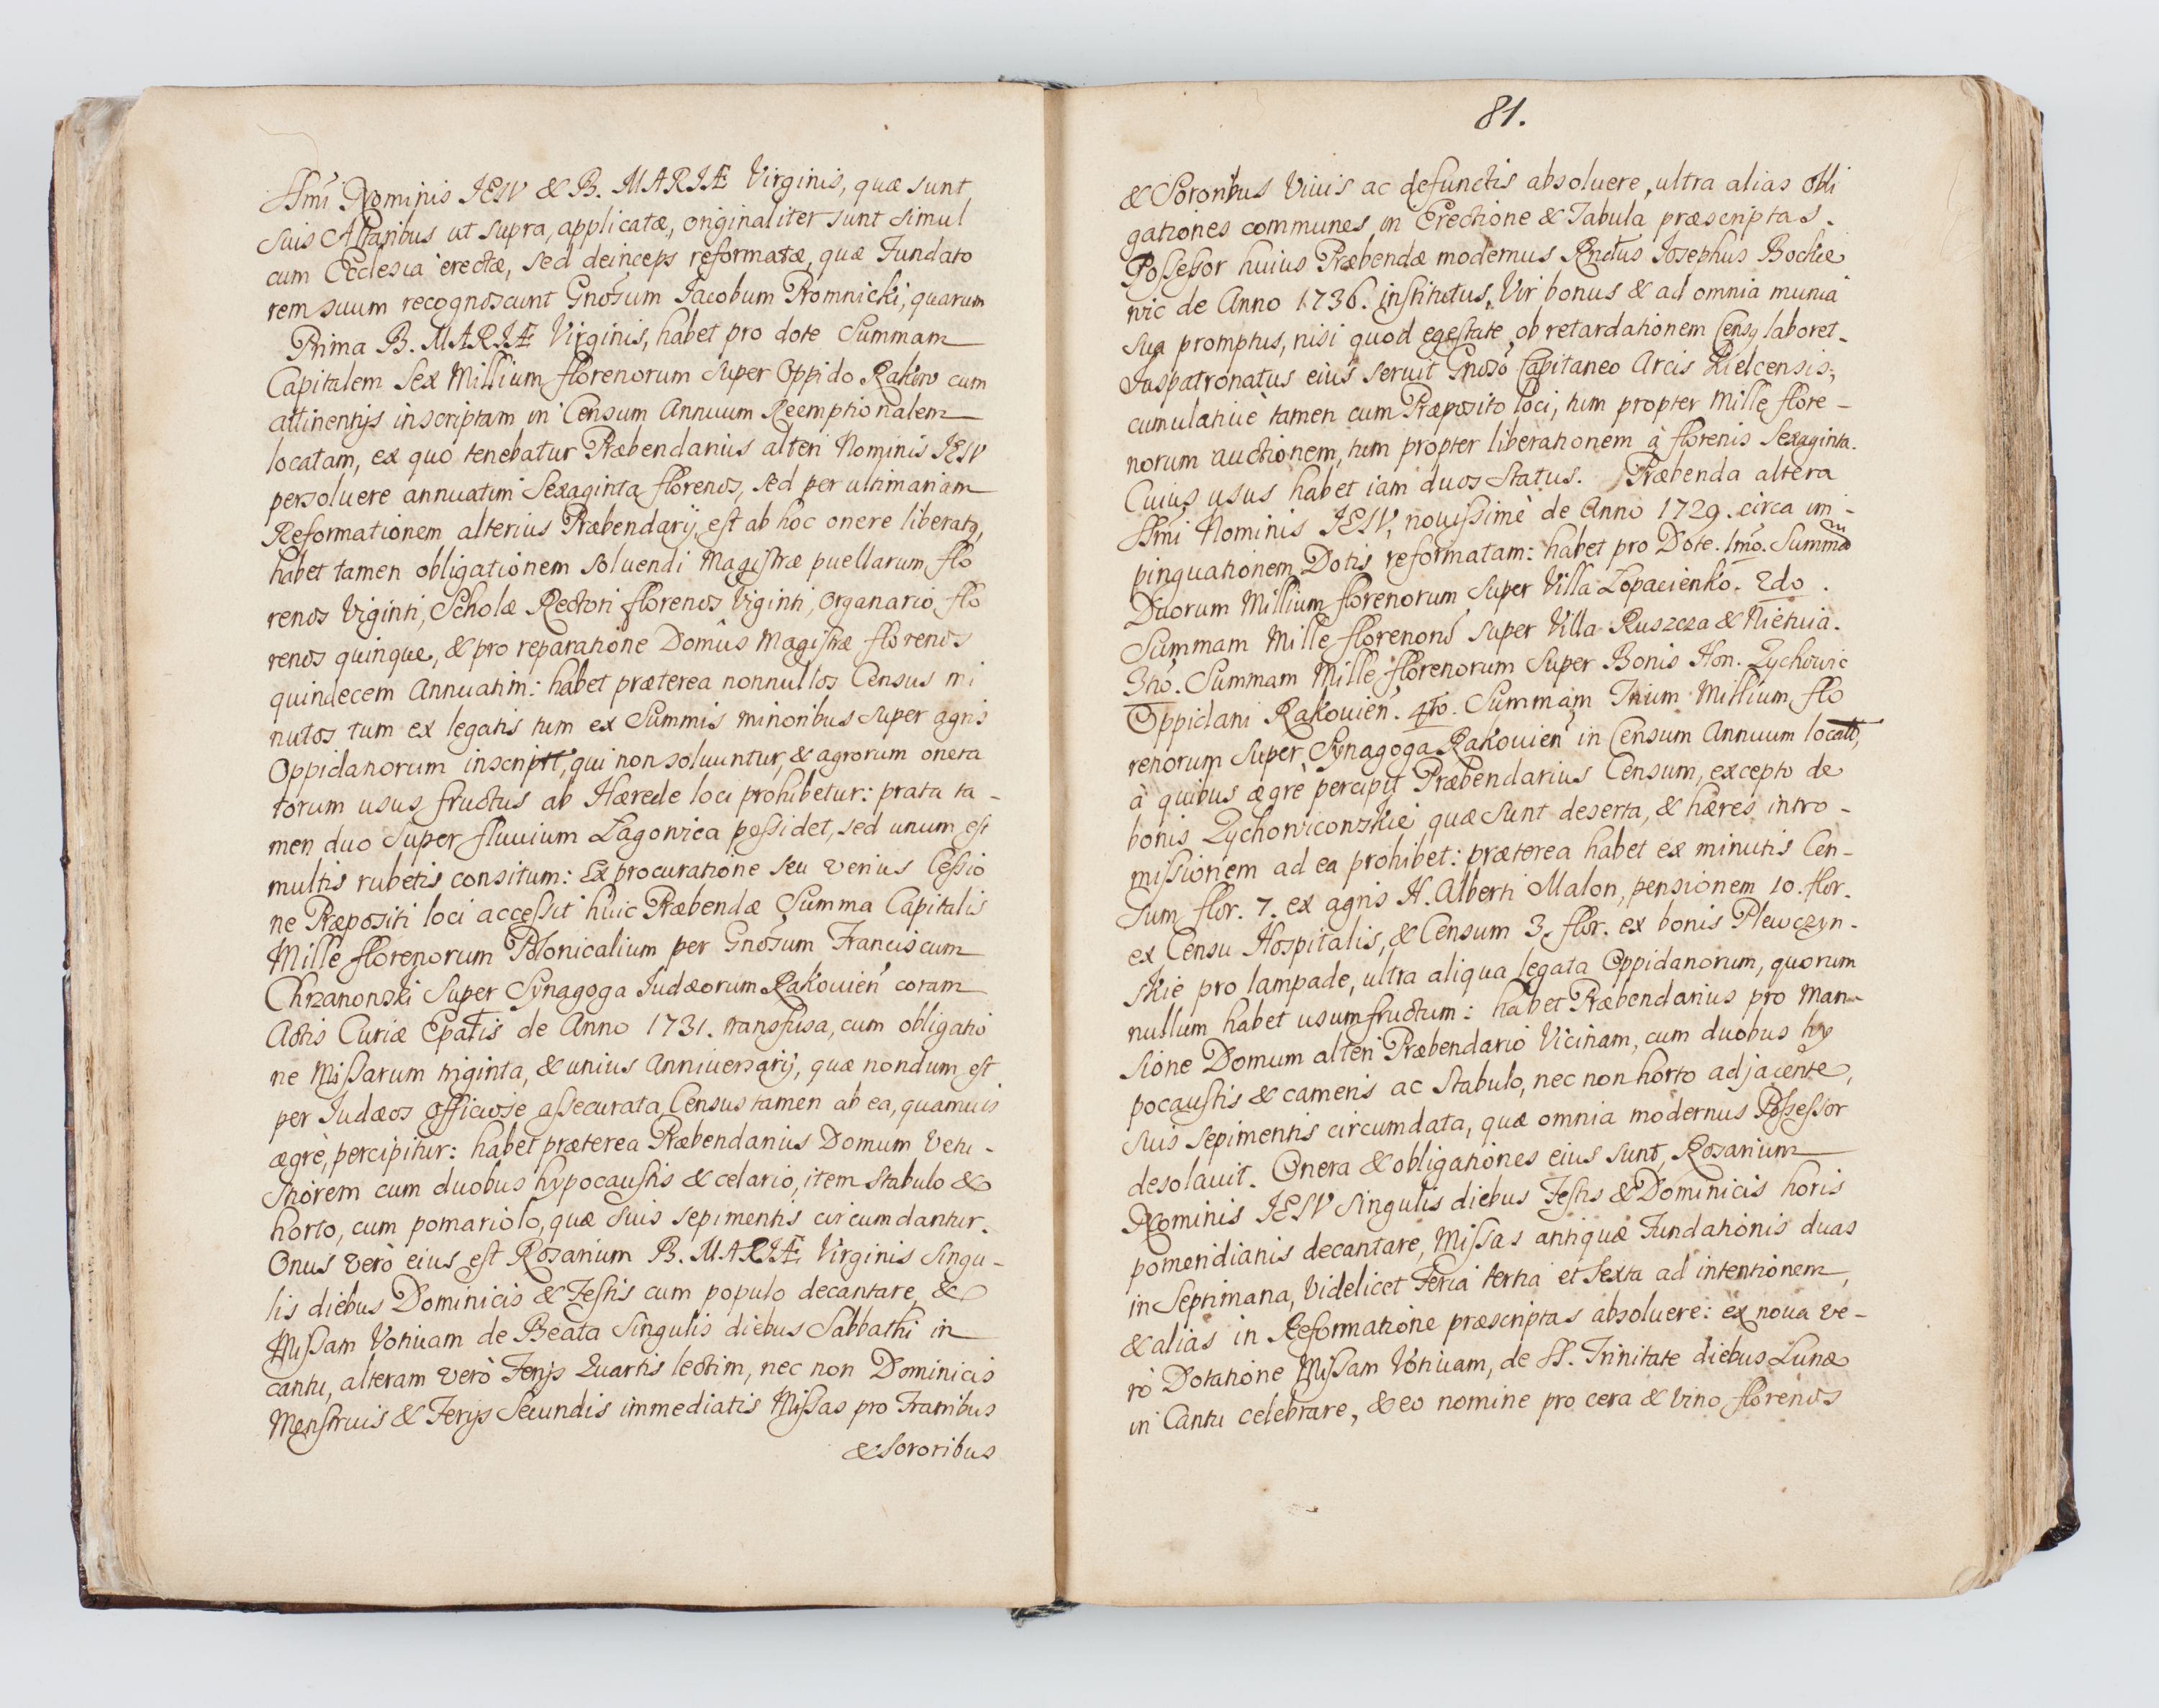 SSmi Nominis IESV & B. MARIÆ Virginis, quæ sunt
suis Altaribus ut supra, applicatæ, originaliter sunt simul
cum Ecclesia erectæ, sed deinceps reformatæ, quæ Fundato
rem suum recognoscunt Gnosum Jacobum Promnicki, quarum
Prima B. MARIÆ Virginis, habet pro dote Summam
Capitalem Sex Millium florenorum super Oppido Rakow cum
attinentijs inscriptam in Censum Annuum Reemptionalem
locatam, ex quo tenebatur Præbendarius alteri Nominis IESV
persoluere annuatim Sexaginta florenos, sed per ultimariam
Reformationem alterius Præbendarij, est ab hoc onere liberatq,
habet tamen obligationem soluendi Magistræ puellarum flo
renos Viginti, Scholæ Rectori florenos Viginti, Organario flo
renos quinque, & pro reparatione Domûs Magistræ florenos
quindecem Annuatim: habet præterea nonnullos Census mi
nutos tum ex legatis tum ex Summis minoribus super agris
Oppidanorum inscriptt, qui non soluuntur, & agrorum onera
torum usus fructus ab Hærede loci prohibetur: prata ta-
men duo super fluvium Lagowica possidet, sed unum est
multis rubetis consitum: Ex procuratione seu verius Cessio
ne Præpositi loci accessit huic Præbendæ Summa Capitalis
Mille florenorum Polonicalium per Gnosum Franciscum
Chrzanowski super Synagoga Judæorum Rakouien coram
Actis Curiæ Epatis de Anno 1731. transfusa, cum obligatio
ne Missarum triginta, & unius Anniuersarij, quæ nondum est
per Judæos officiose assecurata, Census tamen ab ea, quamuis
ægrè, percipitur: habet præterea Præbendarius Domum Vetu-
stiorem cum duobus hypocaustis & celario, item stabulo &
horto, cum pomariolo, quæ suis sepimentis circumdantur.
Onus verò eius est Rosarium B. MARIÆ Virginis singu-
lis diebus Dominicis & Festis cum populo decantare, &
Missam Votiuam de Beata singulis diebus Sabbathi in
cantu, alteram verò Ferijs Quartis lectim, nec non Dominicis
Menstruis & Ferijs Secundis immediatis Missas pro Fratribus
& Sororibus
81.
& Sororibus Viuis ac defunctis absoluere, ultra alias obli
gationes communes in Erectione & Tabula præscriptas.
Possessor huius Præbendæ modernus Rndus Josephus Bockie
wic de Anno 1736. institutus, Vir bonus & ad omnia munia
sua promptus, nisi quod egestate ob retardationem Censq laboret.
Juspatronatus eius seruit Gnoso Capitaneo Arcis Kielcensis,
cumulatiuè tamen cum Præposito loci, tum propter Mille flore-
norum auctionem, tum propter liberationem à florenis Sexaginta.
Cuius usus habet iam duos Status. Præbenda altera
SSmi Nominis IESV, nouissimè de Anno 1729. circa im-
pinguationem Dotis reformatam: habet pro Dote. 1mo. Summam
Duorum Millium florenorum super Villa Lopacienko. 2do.
Summam Mille florenoru super Villa Ruszcza & Nietuia.
3tio. Summam Mille florenorum super Bonis Hon. Zychowic
Oppidani Rakouien. 4to. Summam Trium Millium flo
renorum super Synagoga Rakouien in Censum Annuum locatt,
à quibus ægrè percipit Præbendarius Censum, excepto de
bonis Zychowicowskie, quæ sunt deserta, & hæres intro-
missionem ad ea prohibet: præterea habet ex minutis Cen-
sum flor. 7. ex agris H. Alberti Malon, pensionem 10. flor.
ex Censu Hospitalis, & Censum 3. flor. ex bonis Plewczyn-
skie pro lampade, ultra aliqua legata Oppidanorum, quorum
nullum habet usumfructum: habet Præbendarius pro Man-
sione Domum alteri Præbendario Vicinam, cum duobus hy
pocaustis & cameris ac stabulo, nec non horto adjacente,
suis sepimentis circumdata, quæ omnia modernus Possessor
desolauit. Onera & obligationes eius sunt, Rosarium
Nominis IESV singulis diebus Festis & Dominicis horis
pomeridianis decantare, Missas antiquæ Fundationis duas
in Septimana, Videlicet Feria tertia et sexta ad intentionem,
& alias in Reformatione præscriptas absoluere: ex noua ve-
rò Dotatione Missam Votiuam, de SS. Trinitate diebus Lunæ
in Cantu celebrare, & eo nomine pro cera & vino florenos